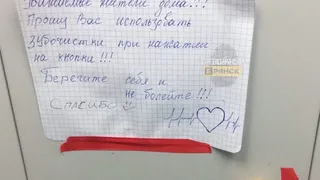 Уважаемые жители дома!!!
Прошу Вас использовать
зубочистки при нажатии
на кнопки!!!
Берегите себя и
не болейте!!!
Спасибо
БРЯНСК